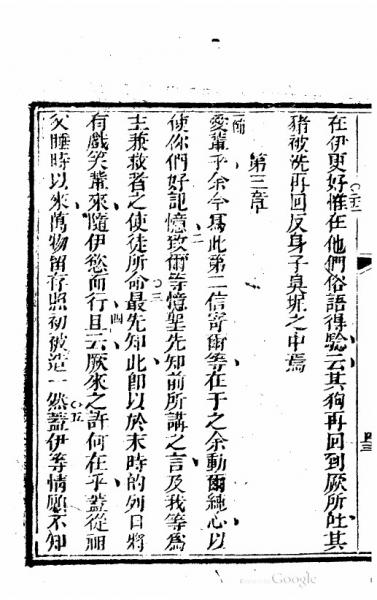 在伊更好惟在他們俗語得驗云其狗再回到厥所吐其
猪被洗再回反身子臭坭之中焉
第三章
愛輩乎余今爲此第二信寄爾等在于之余動爾純心以
使你們好記憶致爾等憶聖先知前所講之言及我等爲
主兼救者之使徒所命最先知此卽以於末時的列日將
有戲笑輩來隨伊慾而行且云厥來之許何在乎蓋從祖
父睡時以來萬物留存照初被造一然蓋伊等情愿不知
二
三
四
五
Google